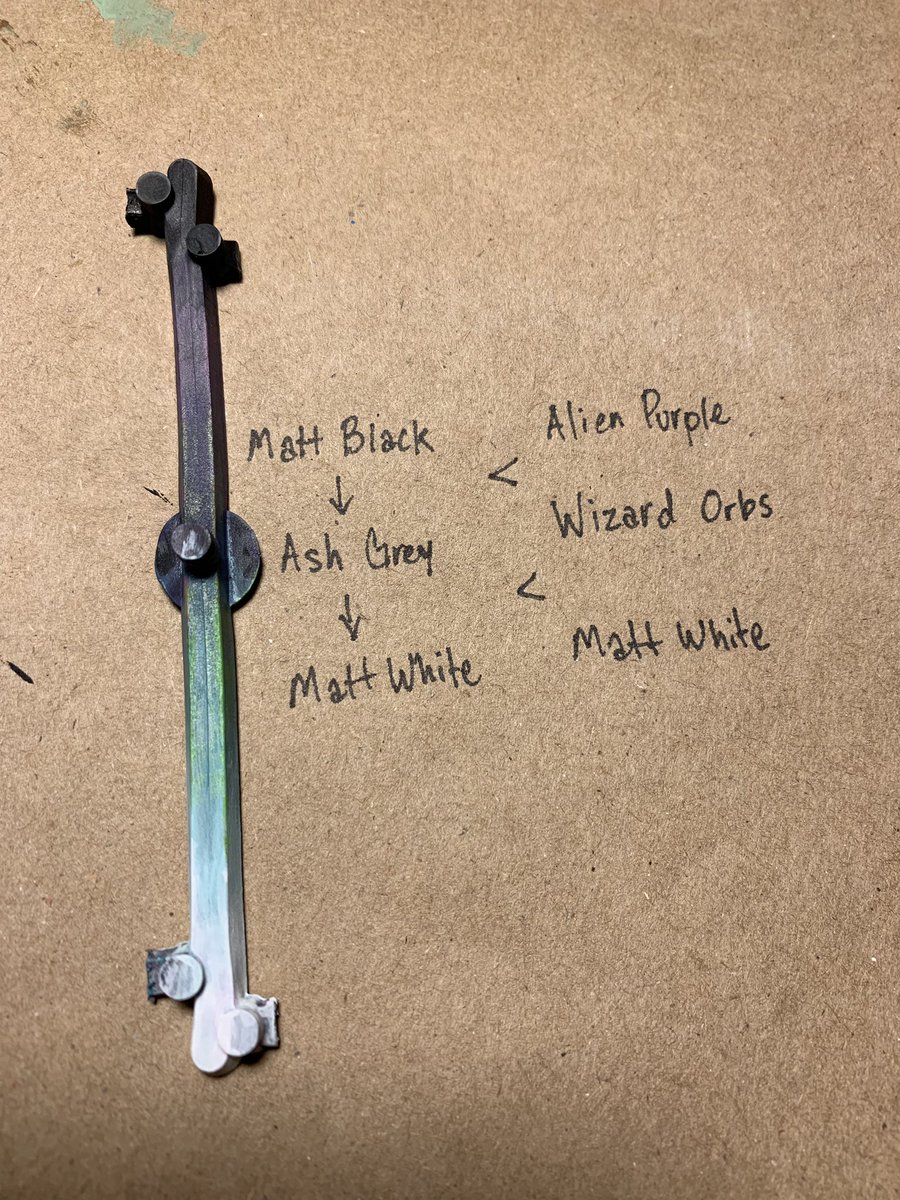 Matt Black
↓
Ash Grey
↓
Matt White
Alien Purple
<
Wizard Orbs
<
Matt White